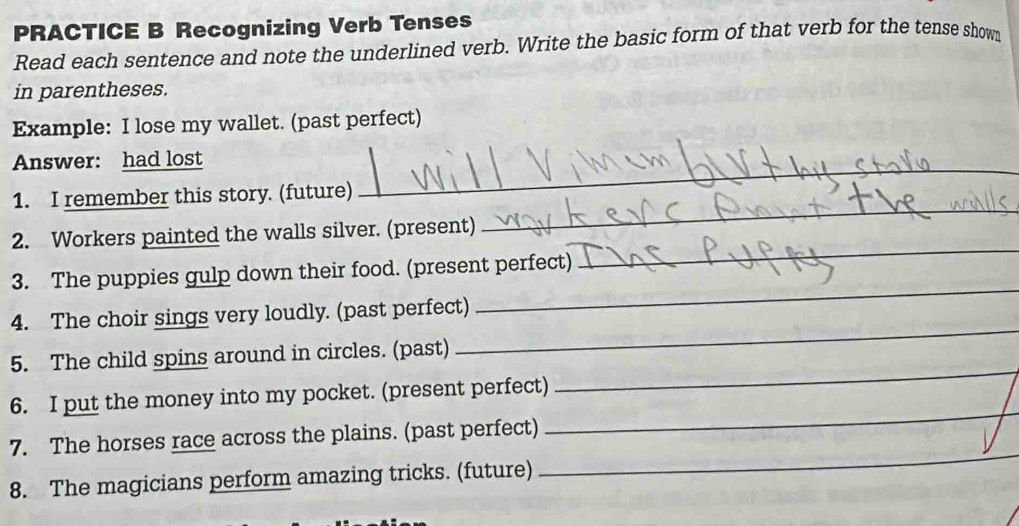 PRACTICE B Recognizing Verb Tenses
Read each sentence and note the underlined verb. Write the basic form of that verb for the tense shown
in parentheses.
Example: I lose my wallet. (past perfect)
Answer: had lost
1. I remember this story. (future) I will this
2. Workers painted the walls silver. (present) workers paint the walls
3. The puppies gulp down their food. (present perfect) The
4. The choir sings very loudly. (past perfect)
5. The child spins around in circles. (past)
6. I put the money into my pocket. (present perfect)
7. The horses race across the plains. (past perfect)
8. The magicians perform amazing tricks. (future)